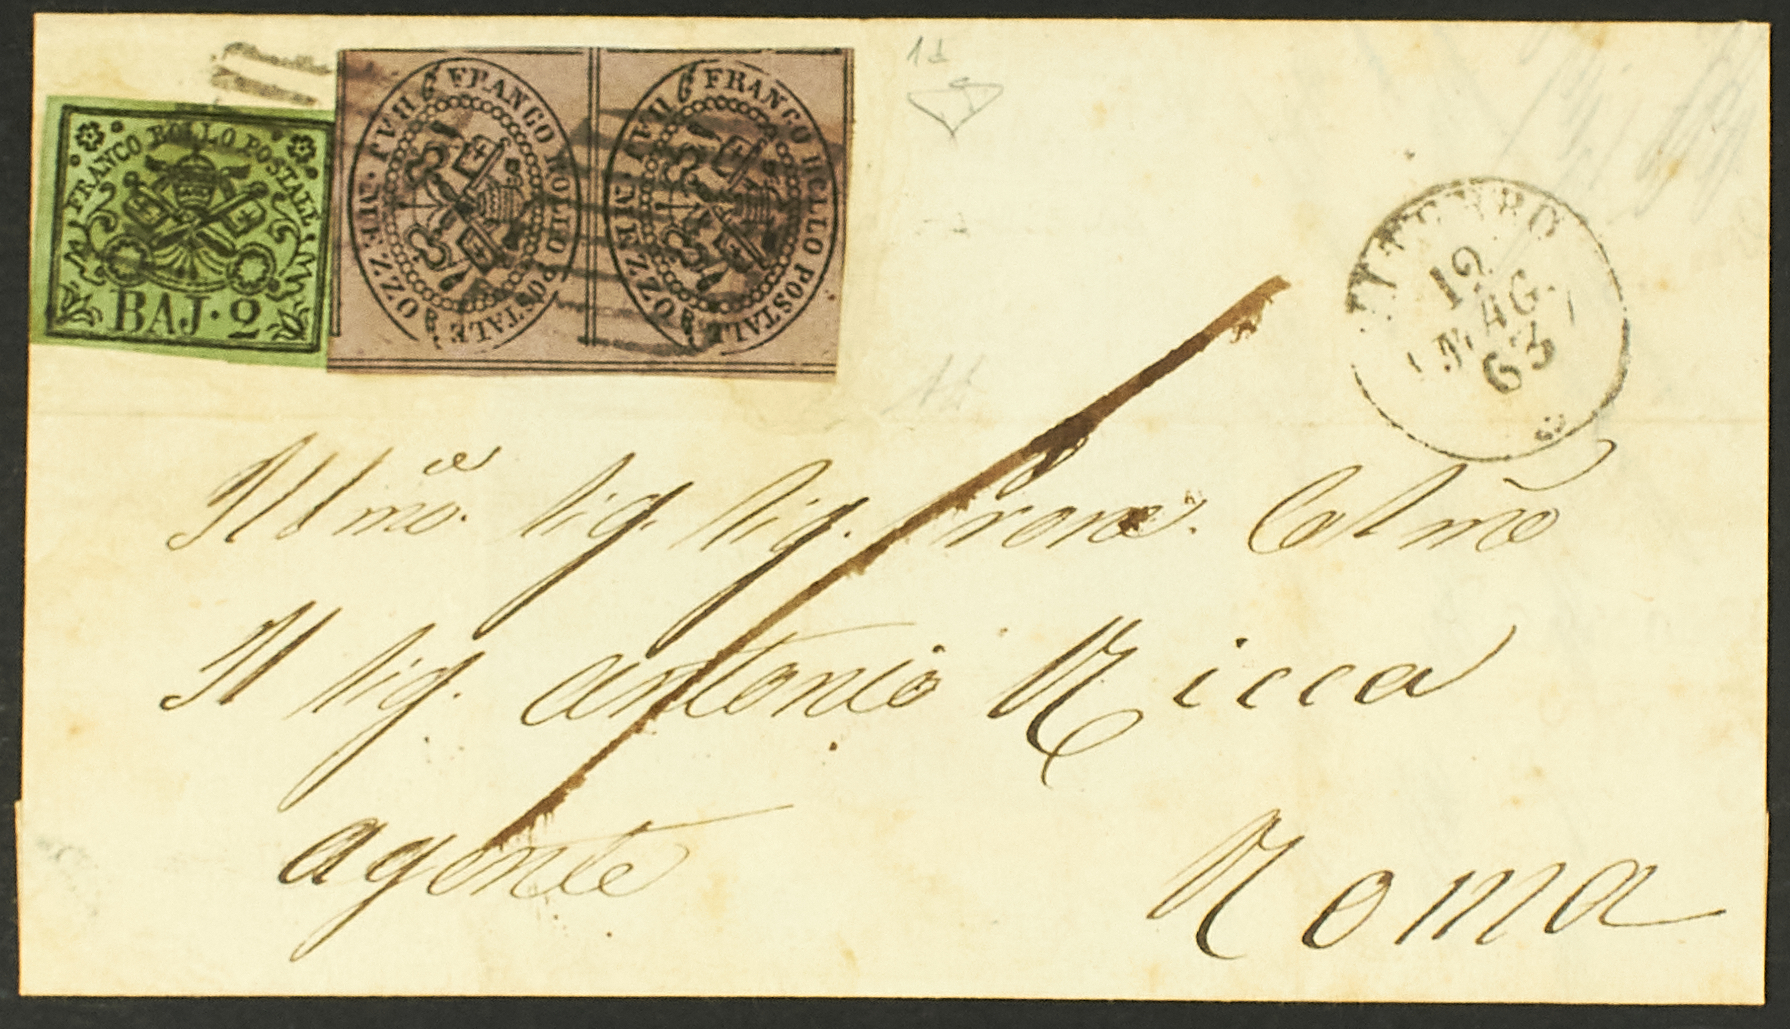 FRANCO BOLLO POSTALE
BAJ·2
FRANCO BOLLO POSTALE
MEZZO B
FRANCO BOLLO POSTALE
MEZZO B
1d
VITERBO
12
MAG.
63
Illmo. Sig. Sig. Prone. Colmo
Il Sig. Antonio Ricca
agente
Roma